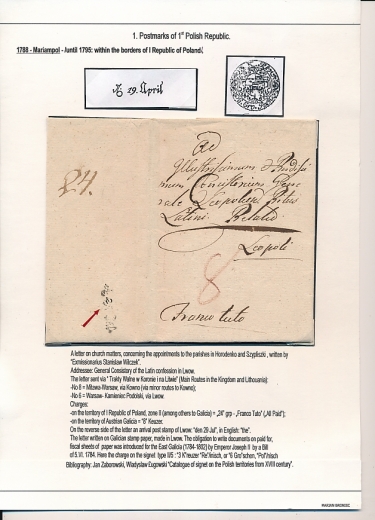 1. Postmarks of 1st Polish Republic.
1788 - Mariampol - /until 1795: within the borders of I Republic of Poland/.
19. April
Ad
24.
Illustrissimum &
Consistorium
Leopoliense Ritus
Latini
Leopoli
8
Franco tuto
A letter on church matters, concerning the appointments to the parishes in Horodenko and Szypliszki, written by
"Exmissionarius Stanislaw Wilczek".
Addressee: General Consistory of the Latin confession in Lwow.
The letter sent via " Trakty Walne w Koronie i na Litwie" (Main Routes in the Kingdom and Lithuania):
-No 8 = Mitawa-Warsaw, via Kowno (via minor routes to Kowno);
-No 6 = Warsaw- Kamieniec Podolski, via Lwow.
Charges:
-on the territory of I Republic of Poland, zone II (among others to Galicia) = „24" grp - „Franco Tuto" („All Paid");
-on the territory of Austrian Galicia = "8" Kreuzer.
On the reverse side of the letter an arrival post stamp of Lwow: "den 29 Jul", in English: "the".
The letter written on Galician stamp paper, made in Lwow. The obligation to write documents on paid for,
fiscal sheets of paper was introduced for the East Galicia (1784-1802) by Emperor Joseph II by a Bill
of 5.VI. 1784. Here the charge on the signet type II/5 : "3 K"/reuzer "Re"/inisch, or "6 Gro"/schen, "Pol"/nisch
Bibliography: Jan Zaborowski, Wladyslaw Ługowski "Catalogue of signet on the Polish territories from XVIII century".
MARIAN GRONIEC